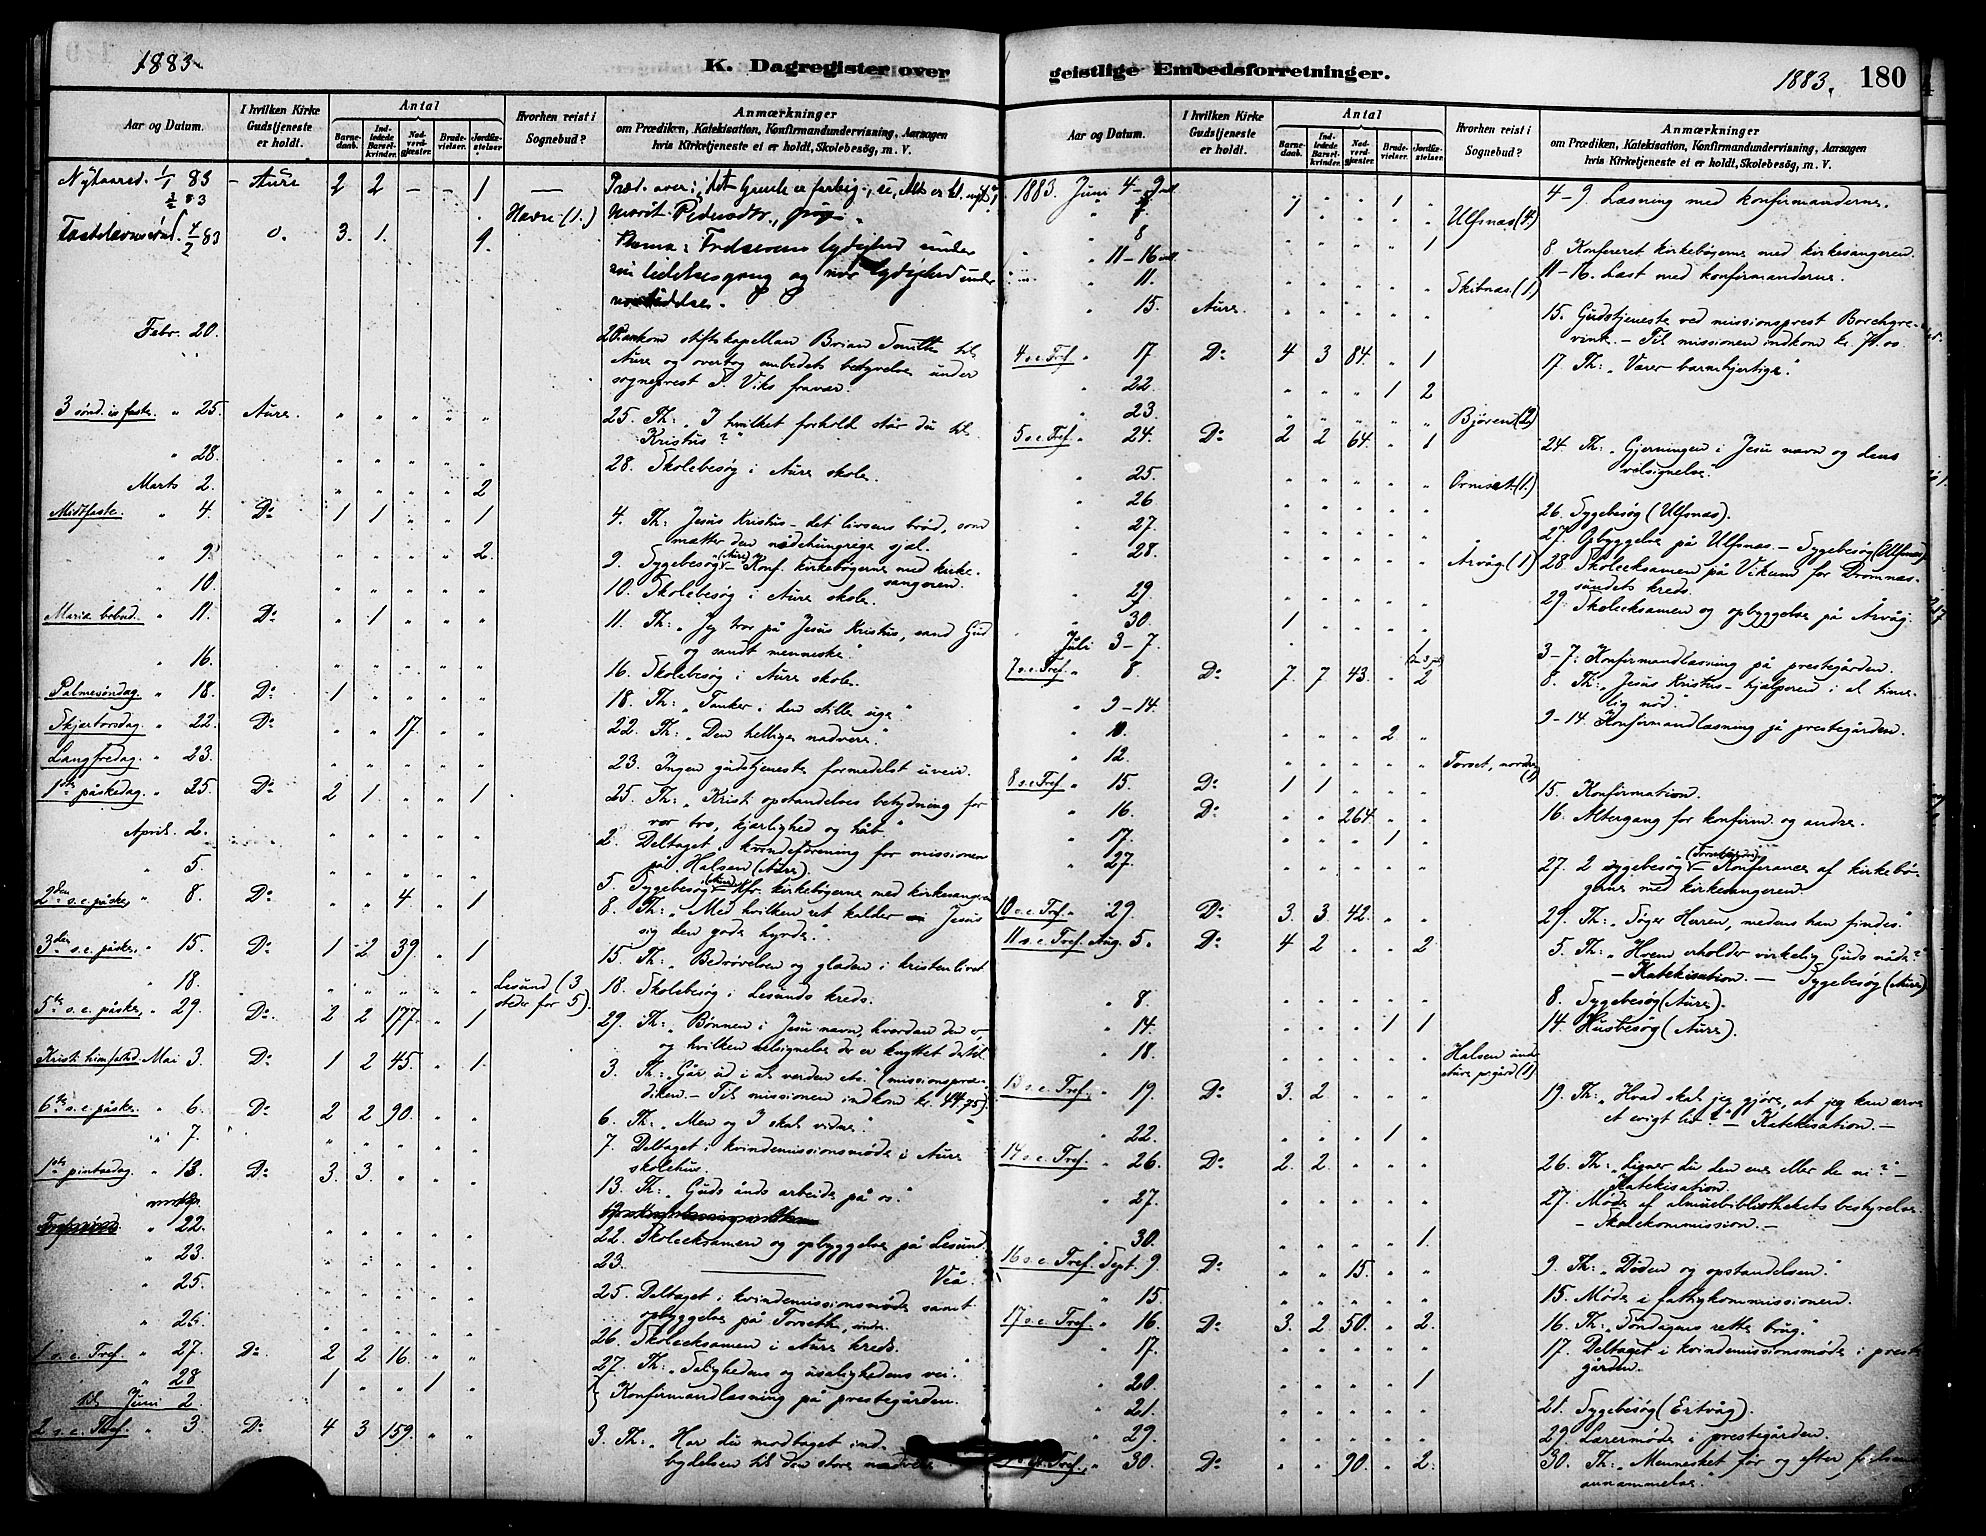 1883.
K. Dagregister over
Aar og Datum.
I hvilken Kirke Gudstjeneste er holdt.
Antal
Barnedaab.
Indledede Barselkvinder.
Nadverdgjæster.
Brudevielser.
Jordfæstelser.
Hvorhen reist i Sognebud?
Anmærkninger
om Prædiken, Katekisation, Konfirmandundervisning, Aarsagen
hvis Kirketjeneste ei er holdt, Skolebesög, m. V.
Nytaarsd. 1/1 83 – Aure 2 2 – – 1 —
Havn (1.)
Fastelavnssønd. 4/2 83 3. 1. 1.
Febr. 20. 20. Ankom stiftskapellan Brian Smith til
Aure og overtog embedets bestyrelse under
sogneprest Viks fravær.
3 sønd. i faste. " 25. Aure. " " " " " 25. Th: „I hvilket forhold står du til
Kristus?"
" 28. " " " " " 28. Skolebesøg i Aure skole.
Marts 2. " " " " 2
Midtfaste. " 4. Do 1 1 " " 1 4. Th: Jesus Kristus – det livsens brød, som
mætter den nådehungrige sjæl.
" 9. " " " " 2. 9. Sygebesøg (Aure) – Konf. kirkebøgerne med kirkesangeren.
" 10. " " " " " 10. Skolebesøg i Aure skole.
Mariæ bebud. " 11. Do " 1 " " " 11. Th: „Jeg tror på Jesus Kristus, sand Gud
og sandt menneske."
" 16. " " " " " 16. Skolebesøg i Aure skole.
Palmesøndag. " 18. Do 1 " " " " 18. Th: „Tanker i den stille uge"
Skjærtorsdag " 22. Do " " 17. " " 22. Th: „Den hellige nadvere."
Langfredag. " 23. " " " " " 23. Ingen gudstjeneste formedelst uveir.
1ste påskedag. " 25. Do 2 1. " " 1 25. Th: „Kristi opstandelses betydning for
vor tro, kjærlighed og håb."
April 2. " " " " " 2. Deltaget i kvindeforening for missionen
på Halsen (Aure).
" 5. " " " " " 5. Sygebesøg (Aure) – Kfr. kirkebøgerne med kirkesangeren
2den s.e. påske " 8. Do " " 4 " 1 8. Th: „Med hvilken ret kalder Jesus
sig den gode hyrde."
3die s.e. påske, " 15. Do 1 2 39. " 1 15. Th: „Bedrøvelsen og glæden i kristenlivet
" 18. " " " " " Lesund (3 steder for 5). 18. Skolebesøg i Lesunds kreds.
5te s.e. påske, " 29. Do 2 2 177. " 1 29. Th: „Bønnen i Jesu navn, hvordan den er
og hvilken velsignelse der er knyttet dertil
Kristi himmelfartsd. Mai 3. Do 1 2 45. " 1. 3. Th: „Går ud i al verden etc." (missionsprædiken. – Til missionen indkom kr. 44.75).
6te s.e. påske. " 6. Do 2 2 90. " " 6. Th: „Men og I skal vidne."
" 7. " " " " " 7. Deltaget i kvindemissionsmøde i Aure
skolehus.
1ste pintsedag " 13. Do 3. 3. " " " 13. Th: „Guds ånds arbeide på os."
" 22. " " " " " 22. Skoleeksamen og opbyggelse på Lesund.
" 23. " " " " " 23. ——— Veå.
" 25. " " " " " 25. Deltaget i kvindemissionsmøde samt
opbyggelse på Torseth, indre
" 26. " " " " " 26. Skoleeksamen i Aure kreds.
1 s.e. Tref. " 27. Do 2 2 16. " " 27. Th: „Salighedens og usalighedens vei."
" 28
til Juni 2 1 " " 1 " Konfirmandlæsning på prestegården.
2 s.e. Tref. " 3. Do 4 3 159. " " 3. Th: „Har du modtaget indbydelsen til den store nadvere
geistlige Embedsforretninger.
1883. 180
Aar og Datum.
I hvilken Kirke Gudstjeneste er holdt.
Antal
Barnedaab.
Indledede Barselkvinder.
Nadverdgjæster.
Brudevielser.
Jordfæstelser.
Hvorhen reist i Sognebud?
Anmærkninger
om Prædiken, Katekisation, Konfirmandundervisning, Aarsagen
hvis Kirketjeneste ei er holdt, Skolebesög, m. V.
1883. Juni 4–9 4–9. Læsning med konfirmanderne.
1 " " 1 " Ulfsnæs (4.)
" 8 " " " " 1 8. Konfereret kirkebøgerne med kirkesangeren.
" 11–16 11–16. Læst med konfirmanderne.
" 11. " " " " " Skibnæs (1.)
" 15. Aure. " " " " " 15. Gudstjeneste ved missionsprest Borchgrevink. – Til missionen indkom kr.
4 s.e. Tref. " 17 Do 4 3 84. " 1 17. Th: „Værer barmhjertige."
" 22. " " " 1 2
" 23. " " " " " Bjøren (2)
5 s.e. Tref. " 24. Do 2 2 64. " 1 24. Th: „Gjerningen i Jesu navn og dens
velsignelse."
" 25. " " " " " Ormset (1.)
" 26 " " " " " 26. Sygebesøg (Ulfsnæs).
" 27. " " " " " 27. Opbyggelse på Ulfsnæs. – Sygebesøg (Ulfsnæs)
" 28. " " " " " Årvåg (1) 28. Skoleeksamen på Vikund for Dromnæssundets kreds.
" 29. " " " " " 29. Skoleeksamen og opbyggelse på Årvåg.
" 30. 1 " " " "
Juli 3–7. 3–7: Konfirmandlæsning på prestegården.
7 s.e. Tref. " 8. Do 7. 7 43. " 2 8. Th: „Jesus Kristus – hjælperen i al timelig nød."
" 9–14. 9–14. Konfirmandlæsning på prestegården.
" 10. " " " 2 "
" 12. " " " " " Torset, nordre (1)
8 s.e. Tref " 15. Do 1 1 " " " 15. Konfirmation.
" 16. Do " " 264. " " 16. Altergang for konfirm. og andre.
" 17. " " " 1 "
" 27. " " " " " 27. 2 sygebesøg – Konferance af kirkebøgerne med kirkesangeren.
10 s.e. Tref. " 29. Do 3. 3 42. " " 29. Th: „Søger Herren, medens han findes."
11 s.e. Tref. Aug. 5. Do 4 2 " " 2 5. Th: „Hvem erholder virkelig Guds nåde?"
– Katekisation. – Sygebesøg (Aure)
" 8. " " " " " 8. Sygebesøg (Aure).
" 14. " " " 1 1 14. Husbesøg (Aure).
" 18. " " " " " Halsen under Aure p.gård (1)
13 s.e. Tref. " 19. Do 3. 2 " " " 19. Th: „Hvad skal jeg gjøre, at jeg kan arve
et evigt liv?" – Katekisation. –
" 22. " " " 1 "
14 s.e. Tref. " 26. Do 2. 2. " " " 26. Th: „Ligner du den ene eller de ni?" –
Katekisation.
" 27. " " " " " 27. Møde af almuebibliothekets bestyrelse.
– Skolekommission. –
" 30. " " " " 1.
16 s.e. Tref. Sept. 9 Do " " 15. " " 9. Th: „Døden og opstandelsen."
" 15 " " " " " 15. Møde i fattigkommissionen.
17 s.e. Tref. " 16. Do 3. 2 50. " 2. 16. Th: „Søndagens rette brug."
" 17. " " " " " 17. Deltaget i kvindemissionsmøde i prestegården.
" 20. " " " " 1
" 21. " " " " " 21. Sygebesøg (Ertvåg).
" 29. " " " " " 29. Lærermøde i prestegården.
Tref. " 30. Do " " 90. " 2. 30. Th: „Mennesket før og efter
annammelse."